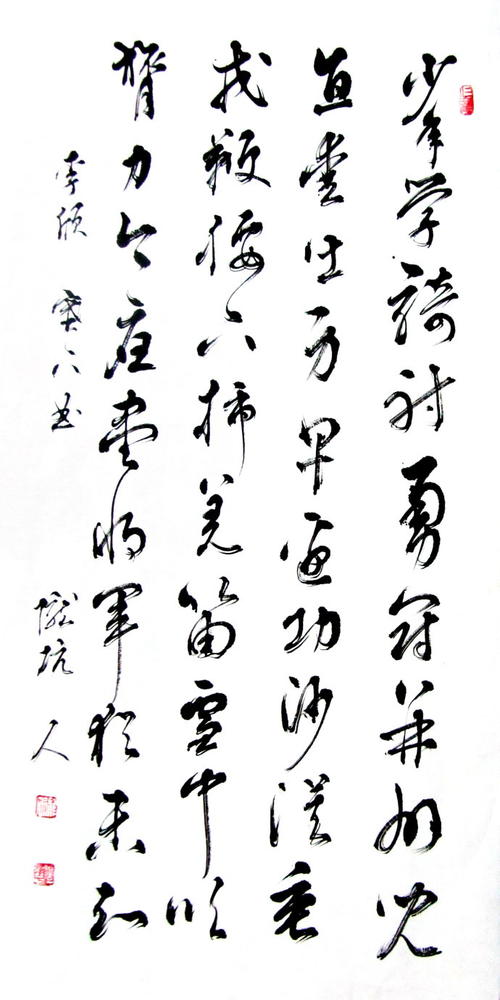 少年学骑射勇冠并州儿
直爱出身早边功沙漠垂
戎鞭腰下插羌笛雪中吹
膂力今应尽将军犹未知
李颀 塞下曲
坑人